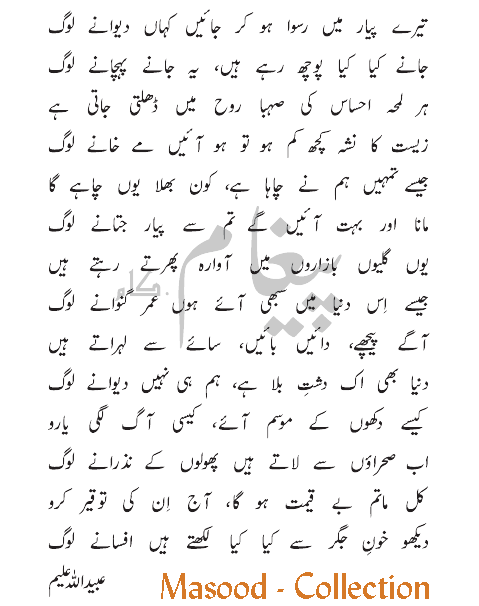 تیرے پیار میں رسوا ہو کر جائیں کہاں دیوانے لوگ
جانے کیا کیا پوچھ رہے ہیں، یہ جانے پہچانے لوگ
ہر لمحہ احساس کی صہبا روح میں ڈھلتی جاتی ہے
زیست کا نشہ کچھ کم ہو تو ہو آئیں مے خانے لوگ
جیسے تمہیں ہم نے چاہا ہے، کون بھلا یوں چاہے گا
مانا اور بہت آئیں گے تم سے پیار جتانے لوگ
یوں گلیوں بازاروں میں آوارہ پھرتے رہتے ہیں
جیسے اِس دنیا میں سبھی آئے ہوں عمر گنوانے لوگ
آگے پیچھے، دائیں بائیں، سائے سے لہراتے ہیں
دنیا بھی اک دشتِ بلا ہے، ہم ہی نہیں دیوانے لوگ
کیسے دکھوں کے موسم آئے، کیسی آگ لگی یارو
اب صحراؤں سے لاتے ہیں پھولوں کے نذرانے لوگ
کل ماتم بے قیمت ہو گا، آج اِن کی توقیر کرو
دیکھو خونِ جگر سے کیا کیا لکھتے ہیں افسانے لوگ
عبیداللہ علیم
Masood - Collection
پیغام.کام